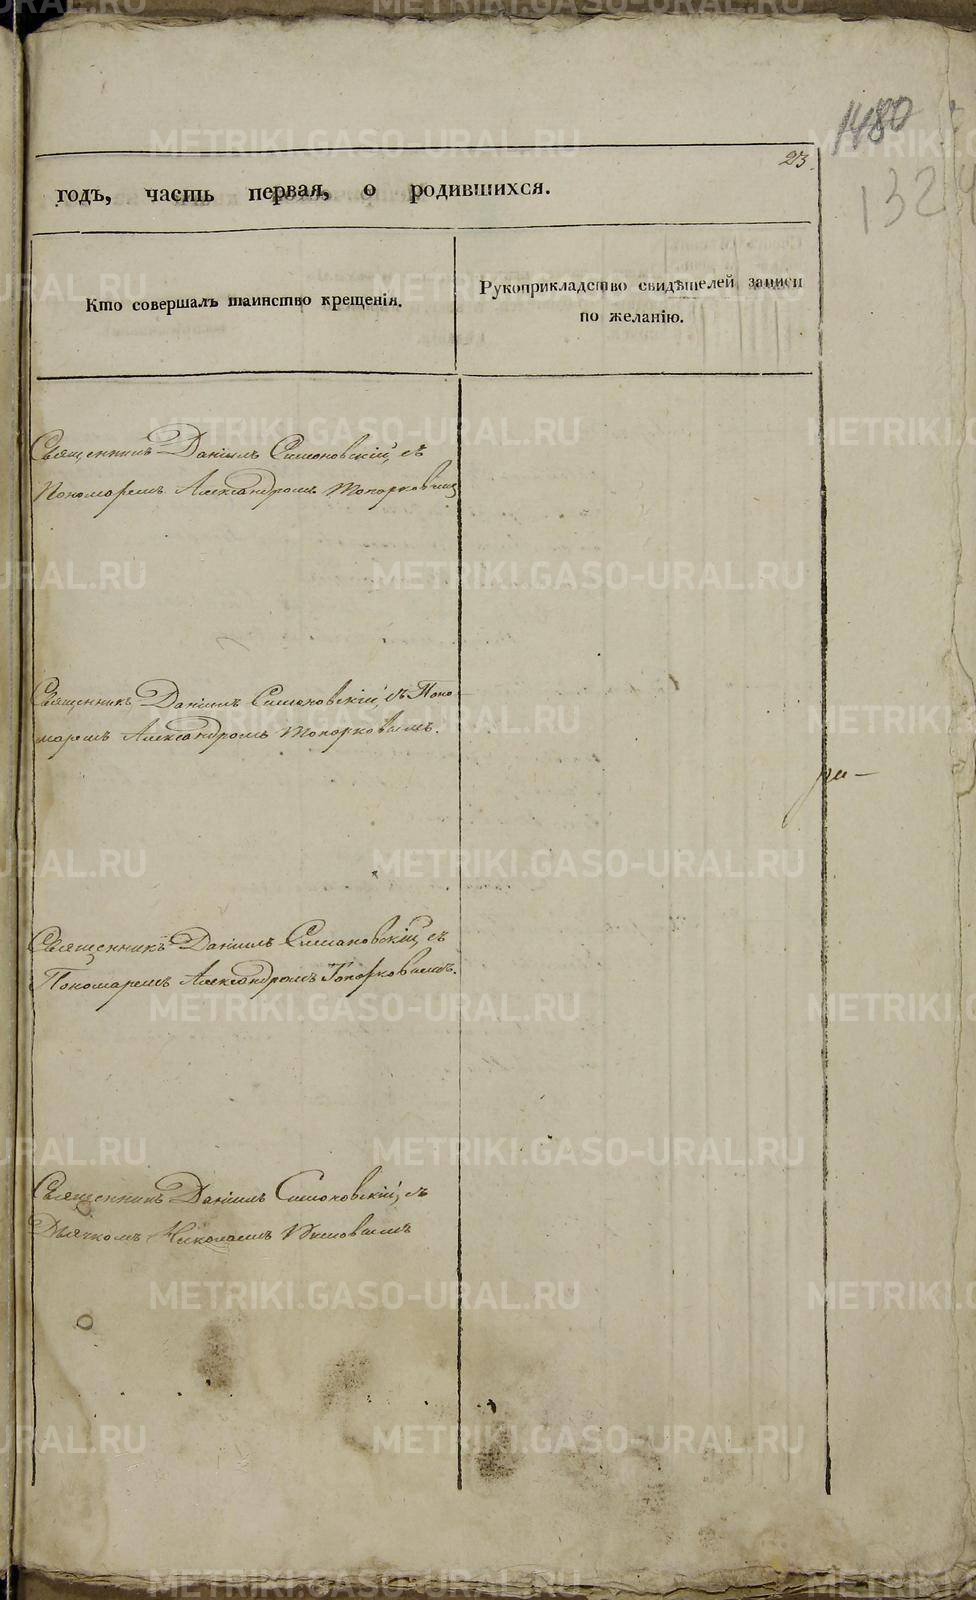 1480
23.
132
годъ, часть первая, о родившихся.
Кто совершалъ таинство крещенія.
Рукоприкладство свидѣтелей записи
по желанію.
Священникъ Даніилъ Симоновскій, съ
Пономаремъ Александромъ Топорковымъ
Священникъ Даніилъ Симоновскій, съ Поно-
маремъ Александромъ Топорковымъ.
Священникъ Даніилъ Симоновскій, съ
Пономаремъ Александромъ Топорковымъ.
Священникъ Даніилъ Симоновскій, съ
Дьячкомъ Николаемъ
METRIKI.GASO-URAL.RU